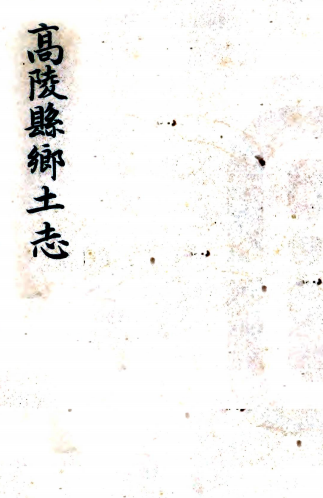 高陵縣鄉土志